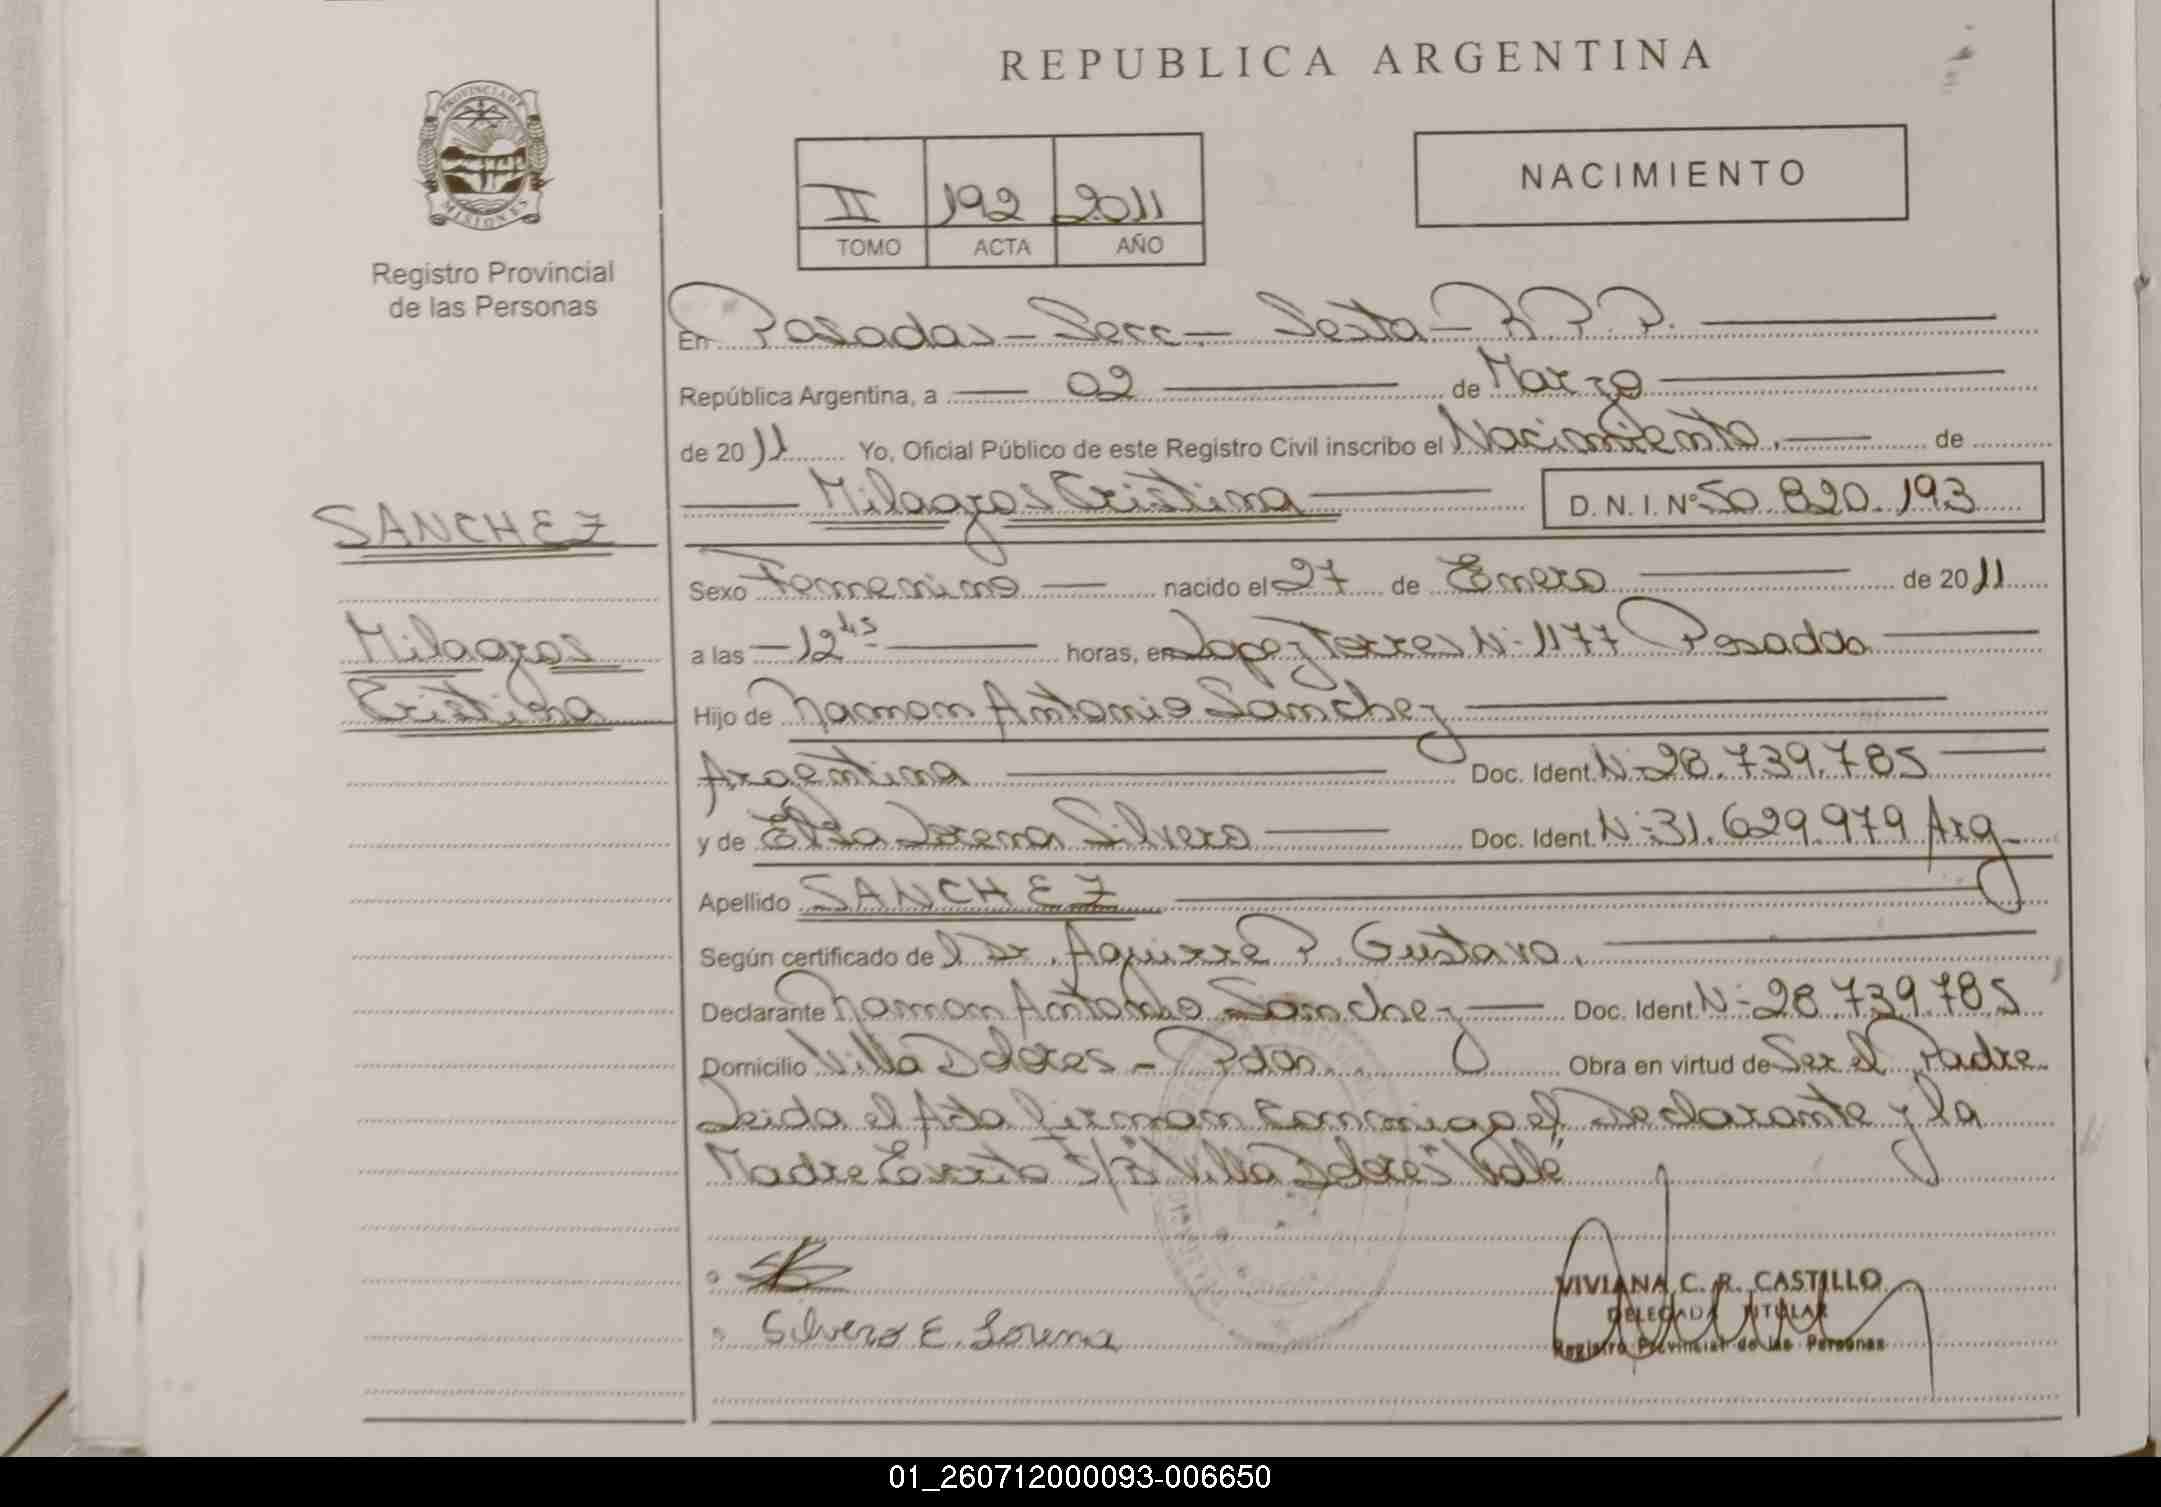 REPUBLICA ARGENTINA
PROVINCIA DE
MISIONES
Registro Provincial
de las Personas
II 192 2011
TOMO ACTA AÑO
NACIMIENTO
En Posadas - Secc - Sexta - R.P.P.
República Argentina, a 02 de Marzo
de 2011 Yo, Oficial Público de este Registro Civil inscribo el Nacimiento. de
Milagros Cristina D. N. I. Nº 50.820.193
SANCHEZ
Milagros
Cristina
Sexo Femenino nacido el 27 de Enero de 2011
a las 12 45 horas, en Lopez Torres Nº 1177 Posadas
Hijo de Ramon Antonio Sanchez
Argentina Doc. Ident. Nº 28.739.785
y de Lorena Silvero Doc. Ident. Nº 31.629.979 Arg
Apellido SANCHEZ
Según certificado del Dr. Aguirre P. Gustavo.
Declarante Ramon Antonio Sanchez Doc. Ident. Nº 28.739.785
Domicilio Villa Dolores - Pdas. Obra en virtud de Ser el Padre
Leida el Acta firman conmigo el Declarante y la
Madre Villa Dolores" Vale
Silvero E. Lorena
VIVIANA C. R. CASTILLO
DELEGADA TITULAR
Registro Provincial de las Personas
01_260712000093-006650